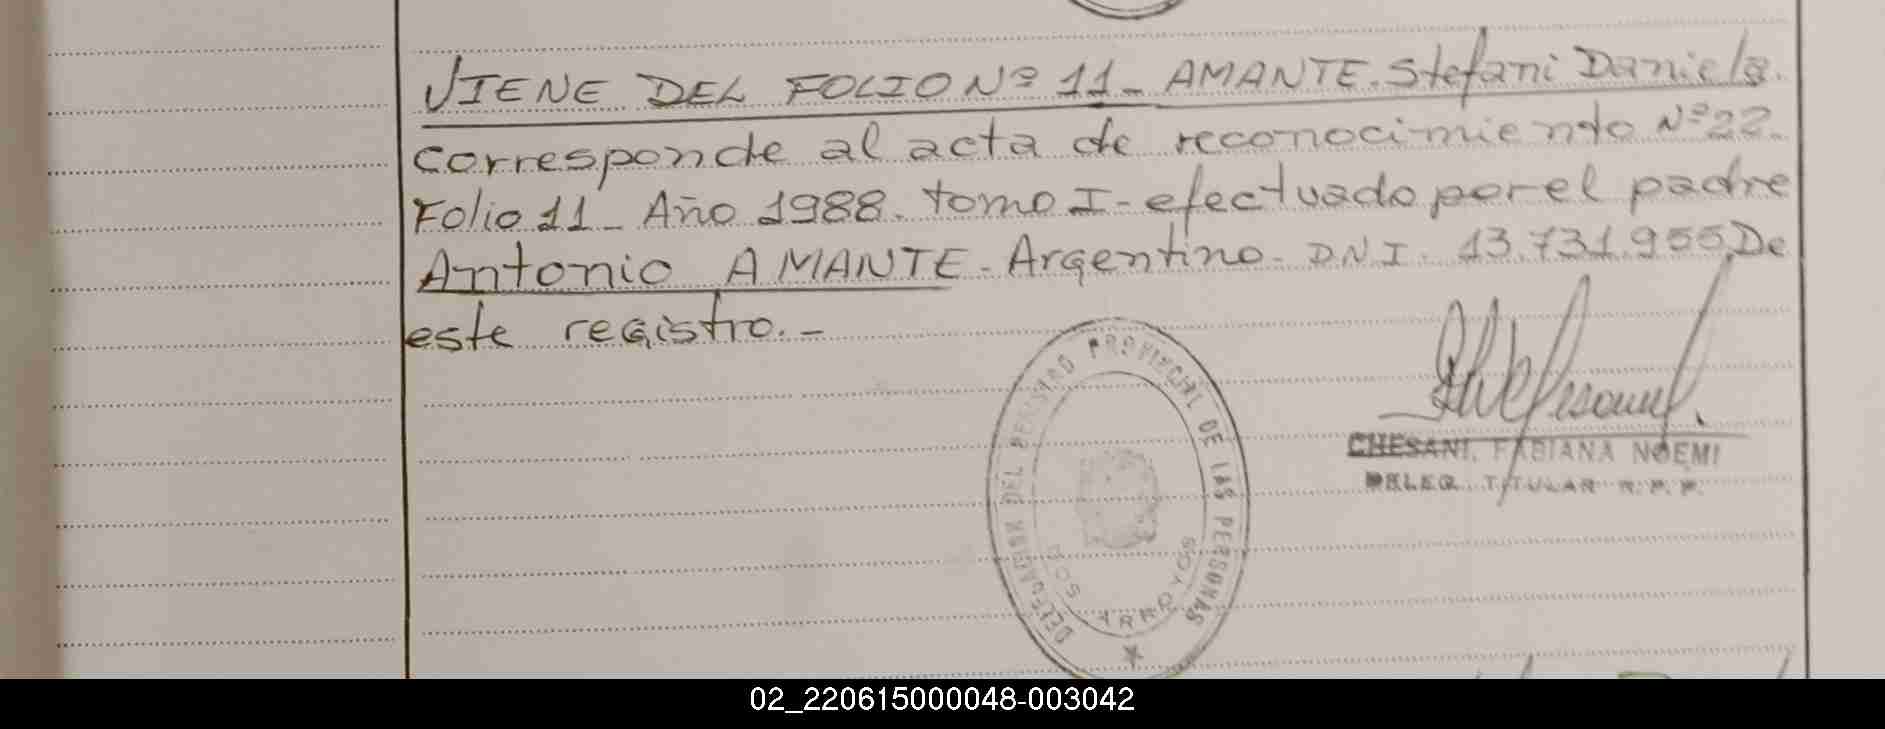 VIENE DEL FOLIO Nº 11_ AMANTE. Stefani Daniela.
corresponde al acta de reconocimiento Nº 22.
Folio 11_ Año 1988. tomo I - efectuado por el padre
Antonio AMANTE - Argentino - D.N.I. 13.731.955 De
este registro. -
DELEGACION DEL REGISTRO PROVINCIAL DE LAS PERSONAS
DOS ARROYOS
CHESANI, FABIANA NOEMI
DELEG. TITULAR R. P. P.
02_220615000048-003042